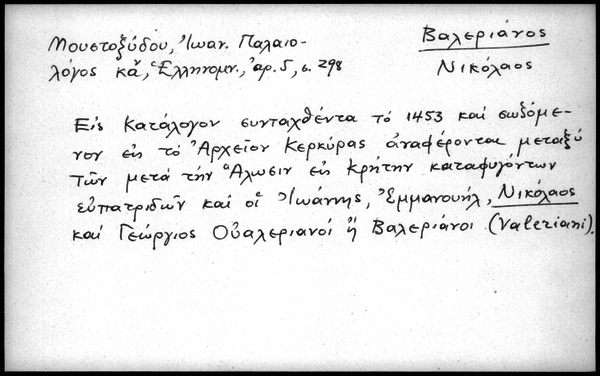 Μουστοξύδου, Ἰωαν. Παλαιο-
λόγος κἄ, Ἑλληνομν., ἀρ. 5, σ. 298
Βαλεριάνος
Νικόλαος
Εἰς Κατάλογον συνταχθέντα τό 1453 καί σωζόμε-
νον εἰς τό Ἀρχεῖον Κερκύρας ἀναφέρονται μεταξύ
τῶν μετά τήν Ἅλωσιν εἰς Κρήτην καταφυγόντων
εὐπατριδῶν καί οἱ Ἰωάννης, Ἐμμανουήλ, Νικόλαος
καί Γεώργιος Οὐαλεριανοί ἤ Βαλεριάνοι (Valeriani).